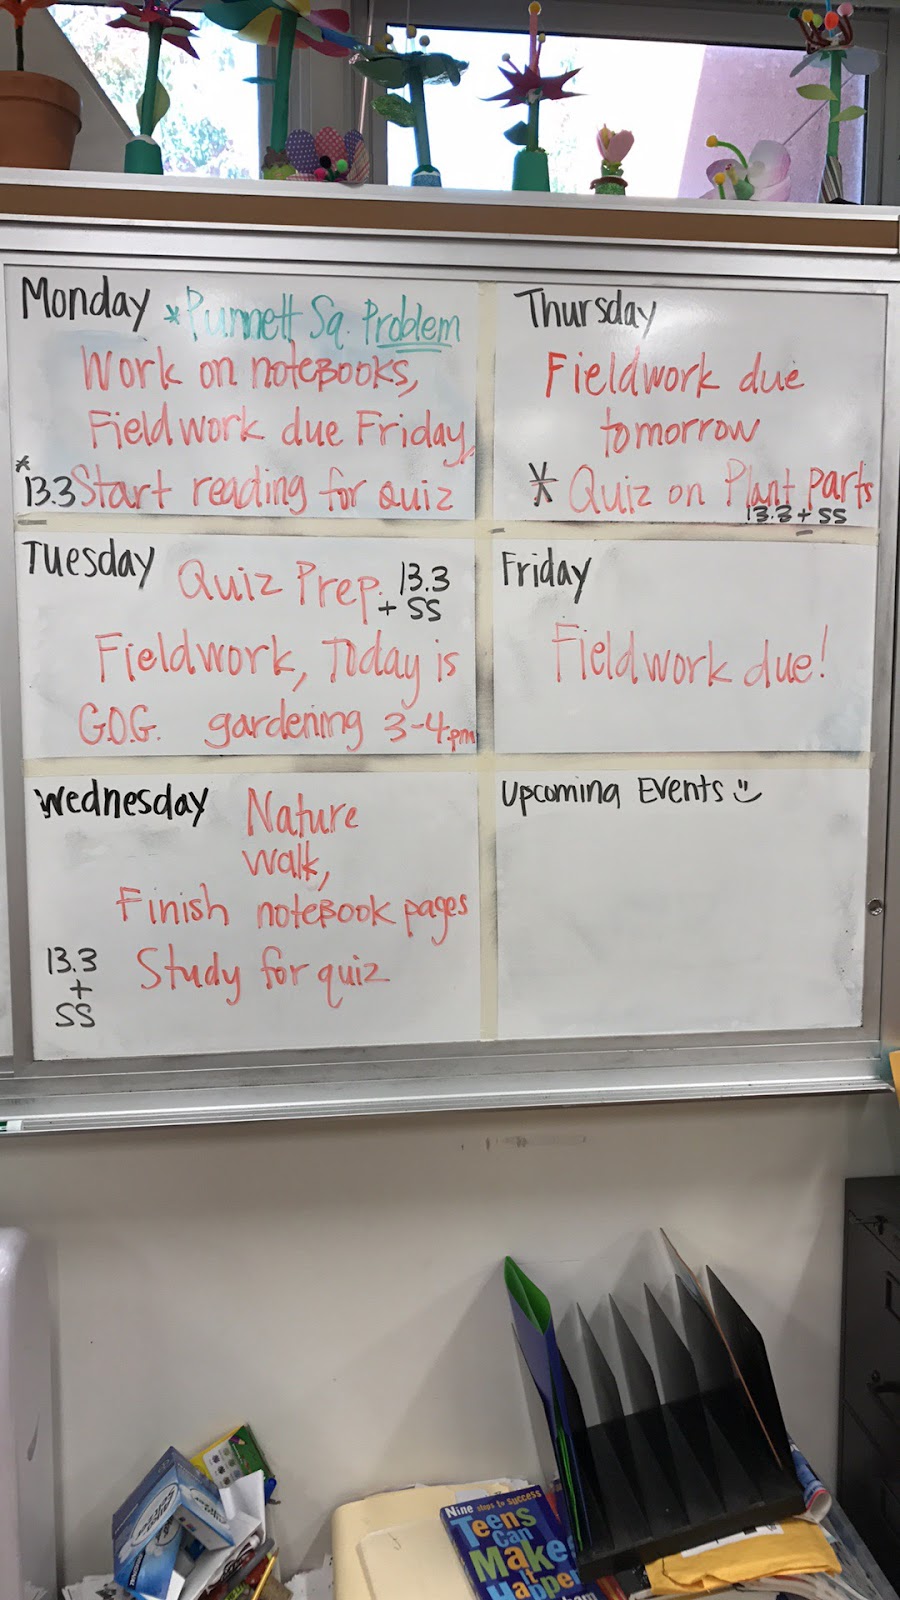 Monday *Punnett Sq. Problem
Work on notebooks,
Fieldwork due Friday,
* 13.3 Start reading for quiz
Tuesday Quiz Prep. 13.3
+ SS
Fieldwork, Today is
G.O.G. gardening 3-4pm
Wednesday Nature
walk,
Finish notebook pages
13.3 Study for quiz
+
SS
Thursday
Fieldwork due
tomorrow
* Quiz on Plant parts
13.3 + SS
Friday
Fieldwork due!
Upcoming Events
Nine steps to success
Teens
Can
Make
it
Happen